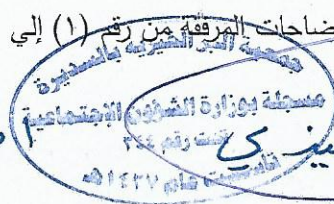 ضاحات المرفقة من رقم (١) إلي
جمعية البر الخيرية بالسديرة
مسجلة بوزارة الشؤون الإجتماعية
تحت رقم ٣٤٤
تأسست عام ١٤٢٧هـ